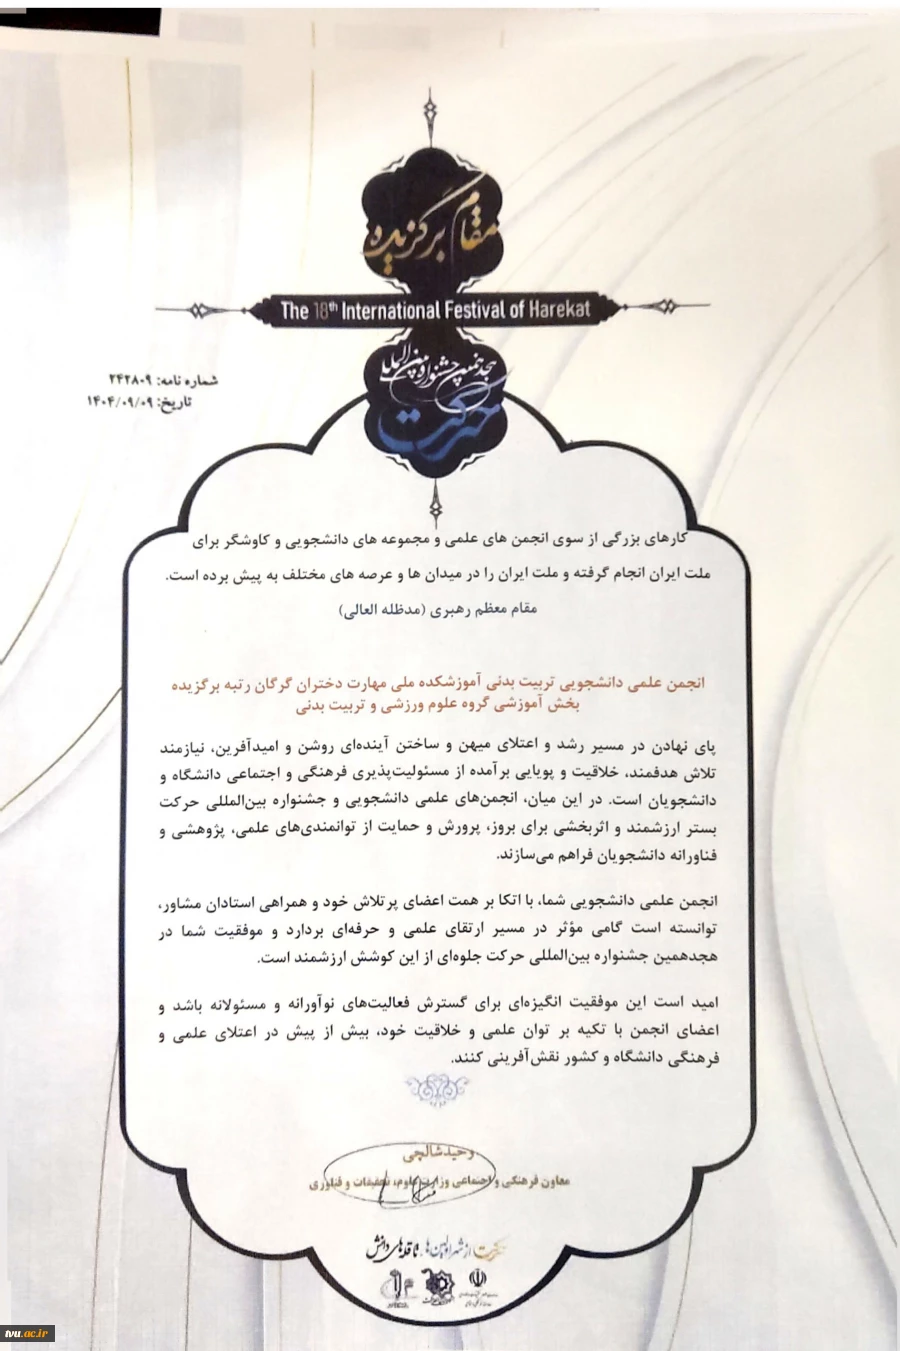 مقام برگزیده
The 18th International Festival of Harekat
هجدهمین جشنواره بین‌المللی
حرکت
شماره نامه: ۲۴۲۸۰۹
تاریخ: ۱۴۰۴/۰۹/۰۹
کارهای بزرگی از سوی انجمن های علمی و مجموعه های دانشجویی و کاوشگر برای
ملت ایران انجام گرفته و ملت ایران را در میدان ها و عرصه های مختلف به پیش برده است.
مقام معظم رهبری (مدظله العالی)
انجمن علمی دانشجویی تربیت بدنی آموزشکده ملی مهارت دختران گرگان رتبه برگزیده
بخش آموزشی گروه علوم ورزشی و تربیت بدنی
پای نهادن در مسیر رشد و اعتلای میهن و ساختن آینده‌ای روشن و امیدآفرین، نیازمند
تلاش هدفمند، خلاقیت و پویایی برآمده از مسئولیت‌پذیری فرهنگی و اجتماعی دانشگاه و
دانشجویان است. در این میان، انجمن‌های علمی دانشجویی و جشنواره بین‌المللی حرکت
بستر ارزشمند و اثربخشی برای بروز، پرورش و حمایت از توانمندی‌های علمی، پژوهشی و
فناورانه دانشجویان فراهم می‌سازند.
انجمن علمی دانشجویی شما، با اتکا بر همت اعضای پرتلاش خود و همراهی استادان مشاور،
توانسته است گامی مؤثر در مسیر ارتقای علمی و حرفه‌ای بردارد و موفقیت شما در
هجدهمین جشنواره بین‌المللی حرکت جلوه‌ای از این کوشش ارزشمند است.
امید است این موفقیت انگیزه‌ای برای گسترش فعالیت‌های نوآورانه و مسئولانه باشد و
اعضای انجمن با تکیه بر توان علمی و خلاقیت خود، بیش از پیش در اعتلای علمی و
فرهنگی دانشگاه و کشور نقش‌آفرینی کنند.
وحید شالچی
معاون فرهنگی و اجتماعی وزارت علوم، تحقیقات و فناوری
حرکت از شهر اولین‌ها، تا قله‌های دانش
tvu.ac.ir